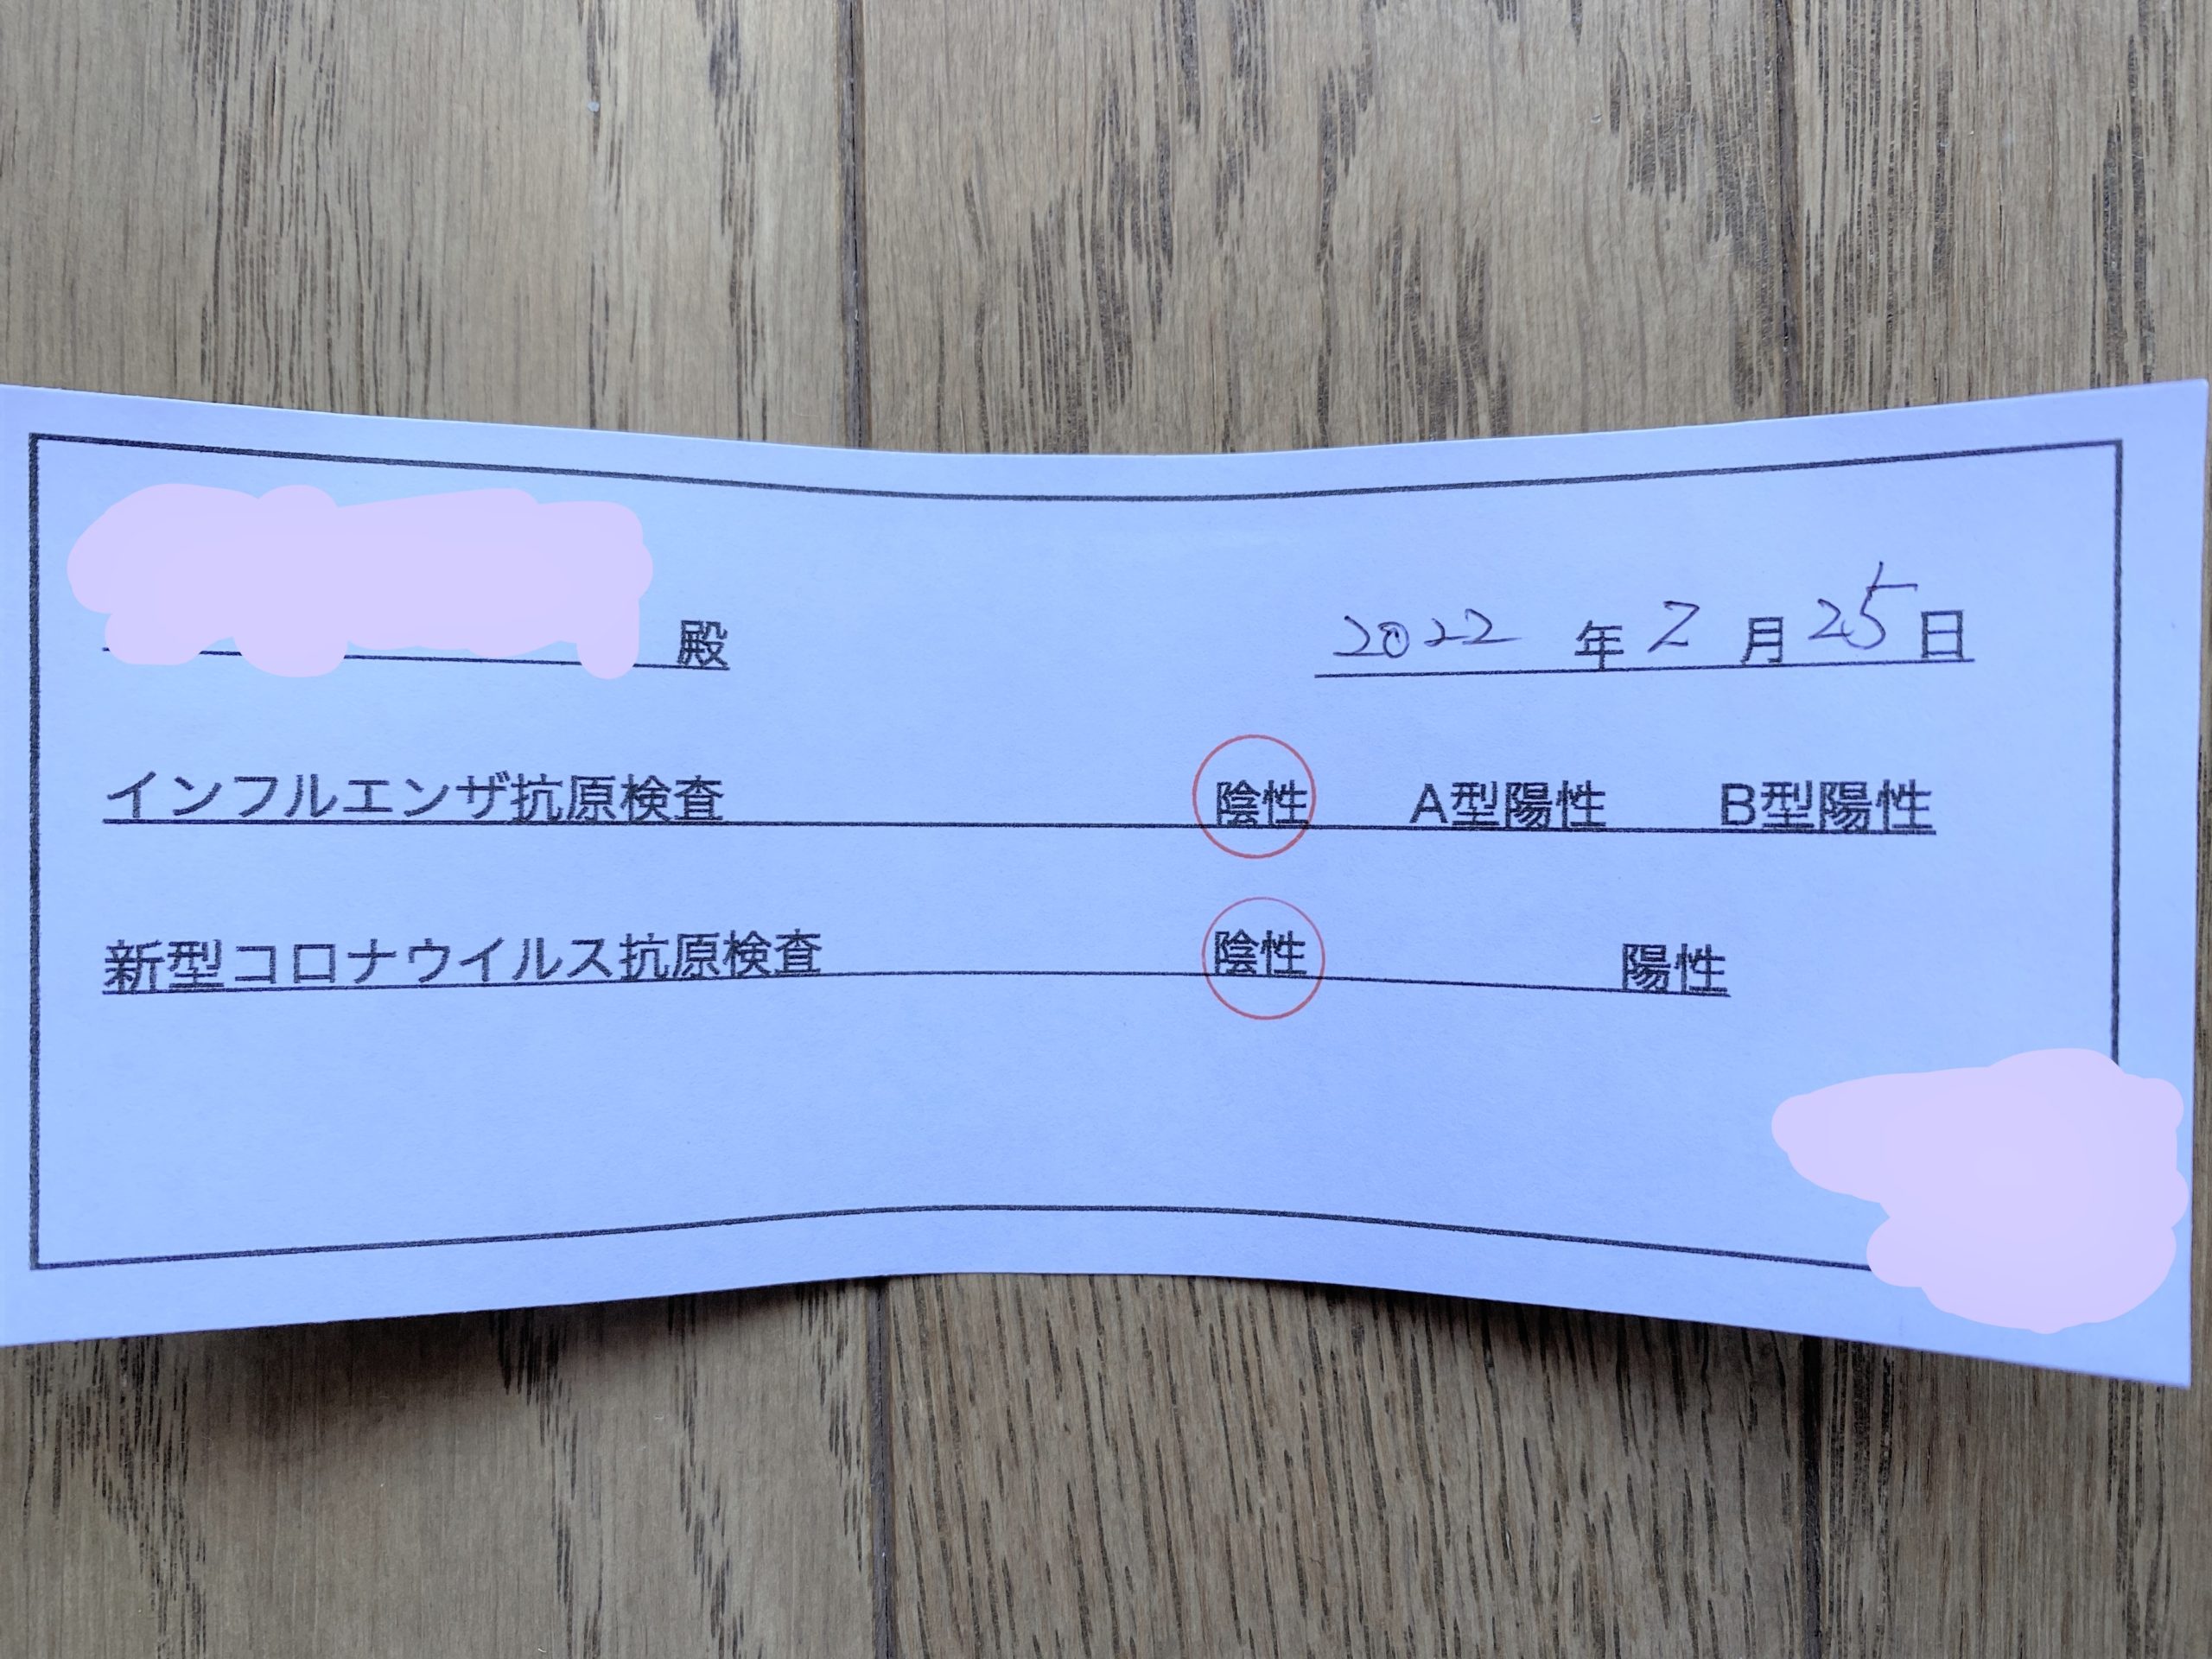 殿 2022年2月25日
インフルエンザ抗原検査 陰性 A型陽性 B型陽性
新型コロナウイルス抗原検査 陰性 陽性